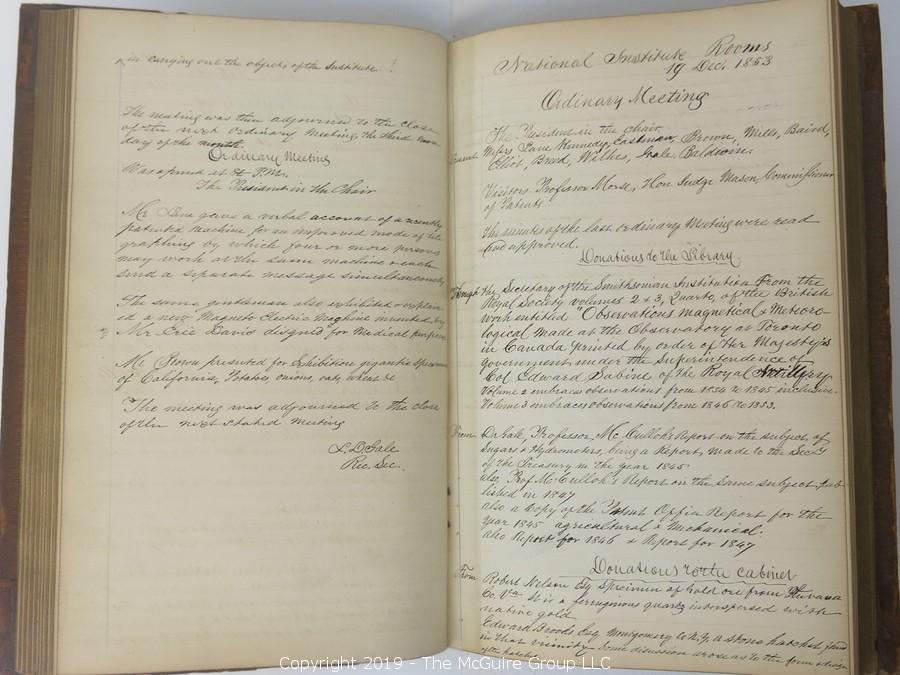 in carrying out the objects of the Institute
The meeting was then adjourned to the close
of the next Ordinary Meeting, the third mon
day of the month.
Ordinary Meeting
Was opened at 8 P.M.
The President in the Chair
Mr Lane gave a verbal account of a recently
patented machine for an improved mode of tele
graphing by which four or more persons
may work at the same machine & each
send a separate message simultaneously
The same gentleman also exhibited & explain
ed a new Magneto Electric Machine invented by
Mr. Davis designed for Medical purposes
Mr Brown presented for Exhibition gigantic specimens
of California, Potatoes, onions, oats, wheat &c
The meeting was adjourned to the close
of the next stated meeting
L. D. Gale
Rec. Sec.
National Institute Rooms
19 Dec. 1853
Ordinary Meeting
The President in the chair
Present Messrs Lane Kennedy, Eastman, Brown, Mills, Baird,
Elliot, Wilkes, Gale, Baldwin.
Visitors Professor Morse, Hon Judge Mason, Commissioner
of Patents.
The minutes of the last ordinary Meeting were read
and approved.
Donations to the Library
Through the Secretary of the Smithsonian Institution From the
Royal Society volumes 2 & 3, Quarto, of the British
work entitled "Observations magnetical & Meteoro-
logical made at the Observatory at Toronto
in Canada printed by order of Her Majesty's
government under the Superintendence of
Col Edward Sabine of the Royal Artillery.
Volume 2 embraces observations from to 1845 inclusive.
Volume 3 embraces observations from 1846 to 1853.
From Dr Gale, Professor McCulloh's Report on the subject of
Sugars & Hydrometers, being a Report, made to the Secty
of the Treasury in the year 1845
also, Prof McCulloh's Report on the same subject, pub-
lished in 1847
also a Copy of the Patent Office Report for the
year 1845 agricultural & Mechanical.
also Report for 1846 & Report for 1847
Donations to the Cabinet
From Robert Nelson Esq Specimen of Gold ore from Fluvana
Co. Va It is a ferruginous quartz interspersed with
native gold.
Edward Esq, Montgomery Co N.Y. a stone hatchet found
in that vicinity Some discussion arose as to the form & design
of the hatchet
Copyright 2019 - The McGuire Group LLC